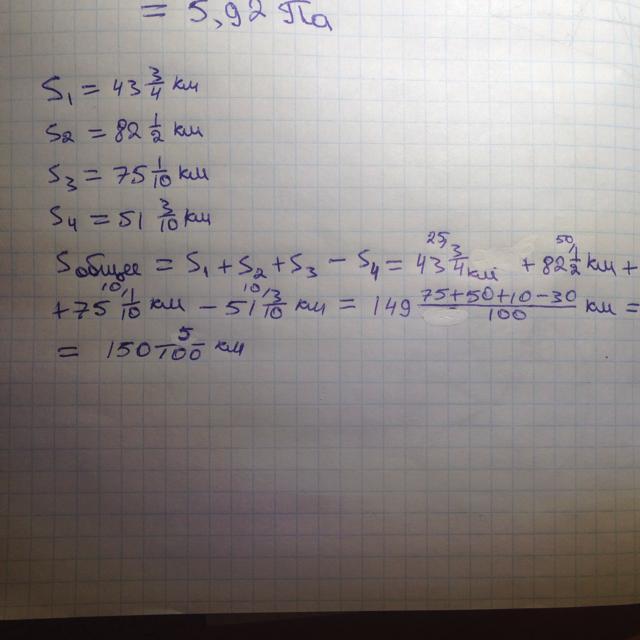 = 5,92 Па
S₁ = 43 3/4 км
S₂ = 82 1/2 км
S₃ = 75 1/10 км
S₄ = 51 3/10 км
Sобщее = S₁ + S₂ + S₃ − S₄ = 43 ²⁵⁾3/4 км + 82 ⁵⁰⁾1/2 км +
+ 75 ¹⁰⁾1/10 км − 51 ¹⁰⁾3/10 км = 149 75+50+10−30/100 км =
= 150 5/100 км